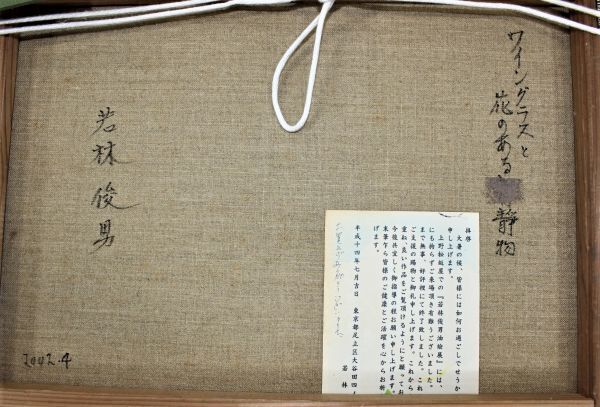 ワイングラスと
花のある
静物
若林 俊男
2002.4
拝啓
大暑の候、皆様には如何お過ごしでせうか
申し上げます。
上野松坂屋での『若林俊男油絵展』には、
にも拘らずご来場頂き有難うございました。
まで無事、好評裡にて終了致しました。これ
ご支援の賜物と御礼申し上げます。これから
重ね、良い作品をご覧頂けるようにと願って
今後共宜しく御指導の程お願い申し上げます。
末筆乍ら皆様のご健康とご活躍を心からお祈
げます。
平成十四年七月吉日
東京都足立区大谷田四ノ
若林